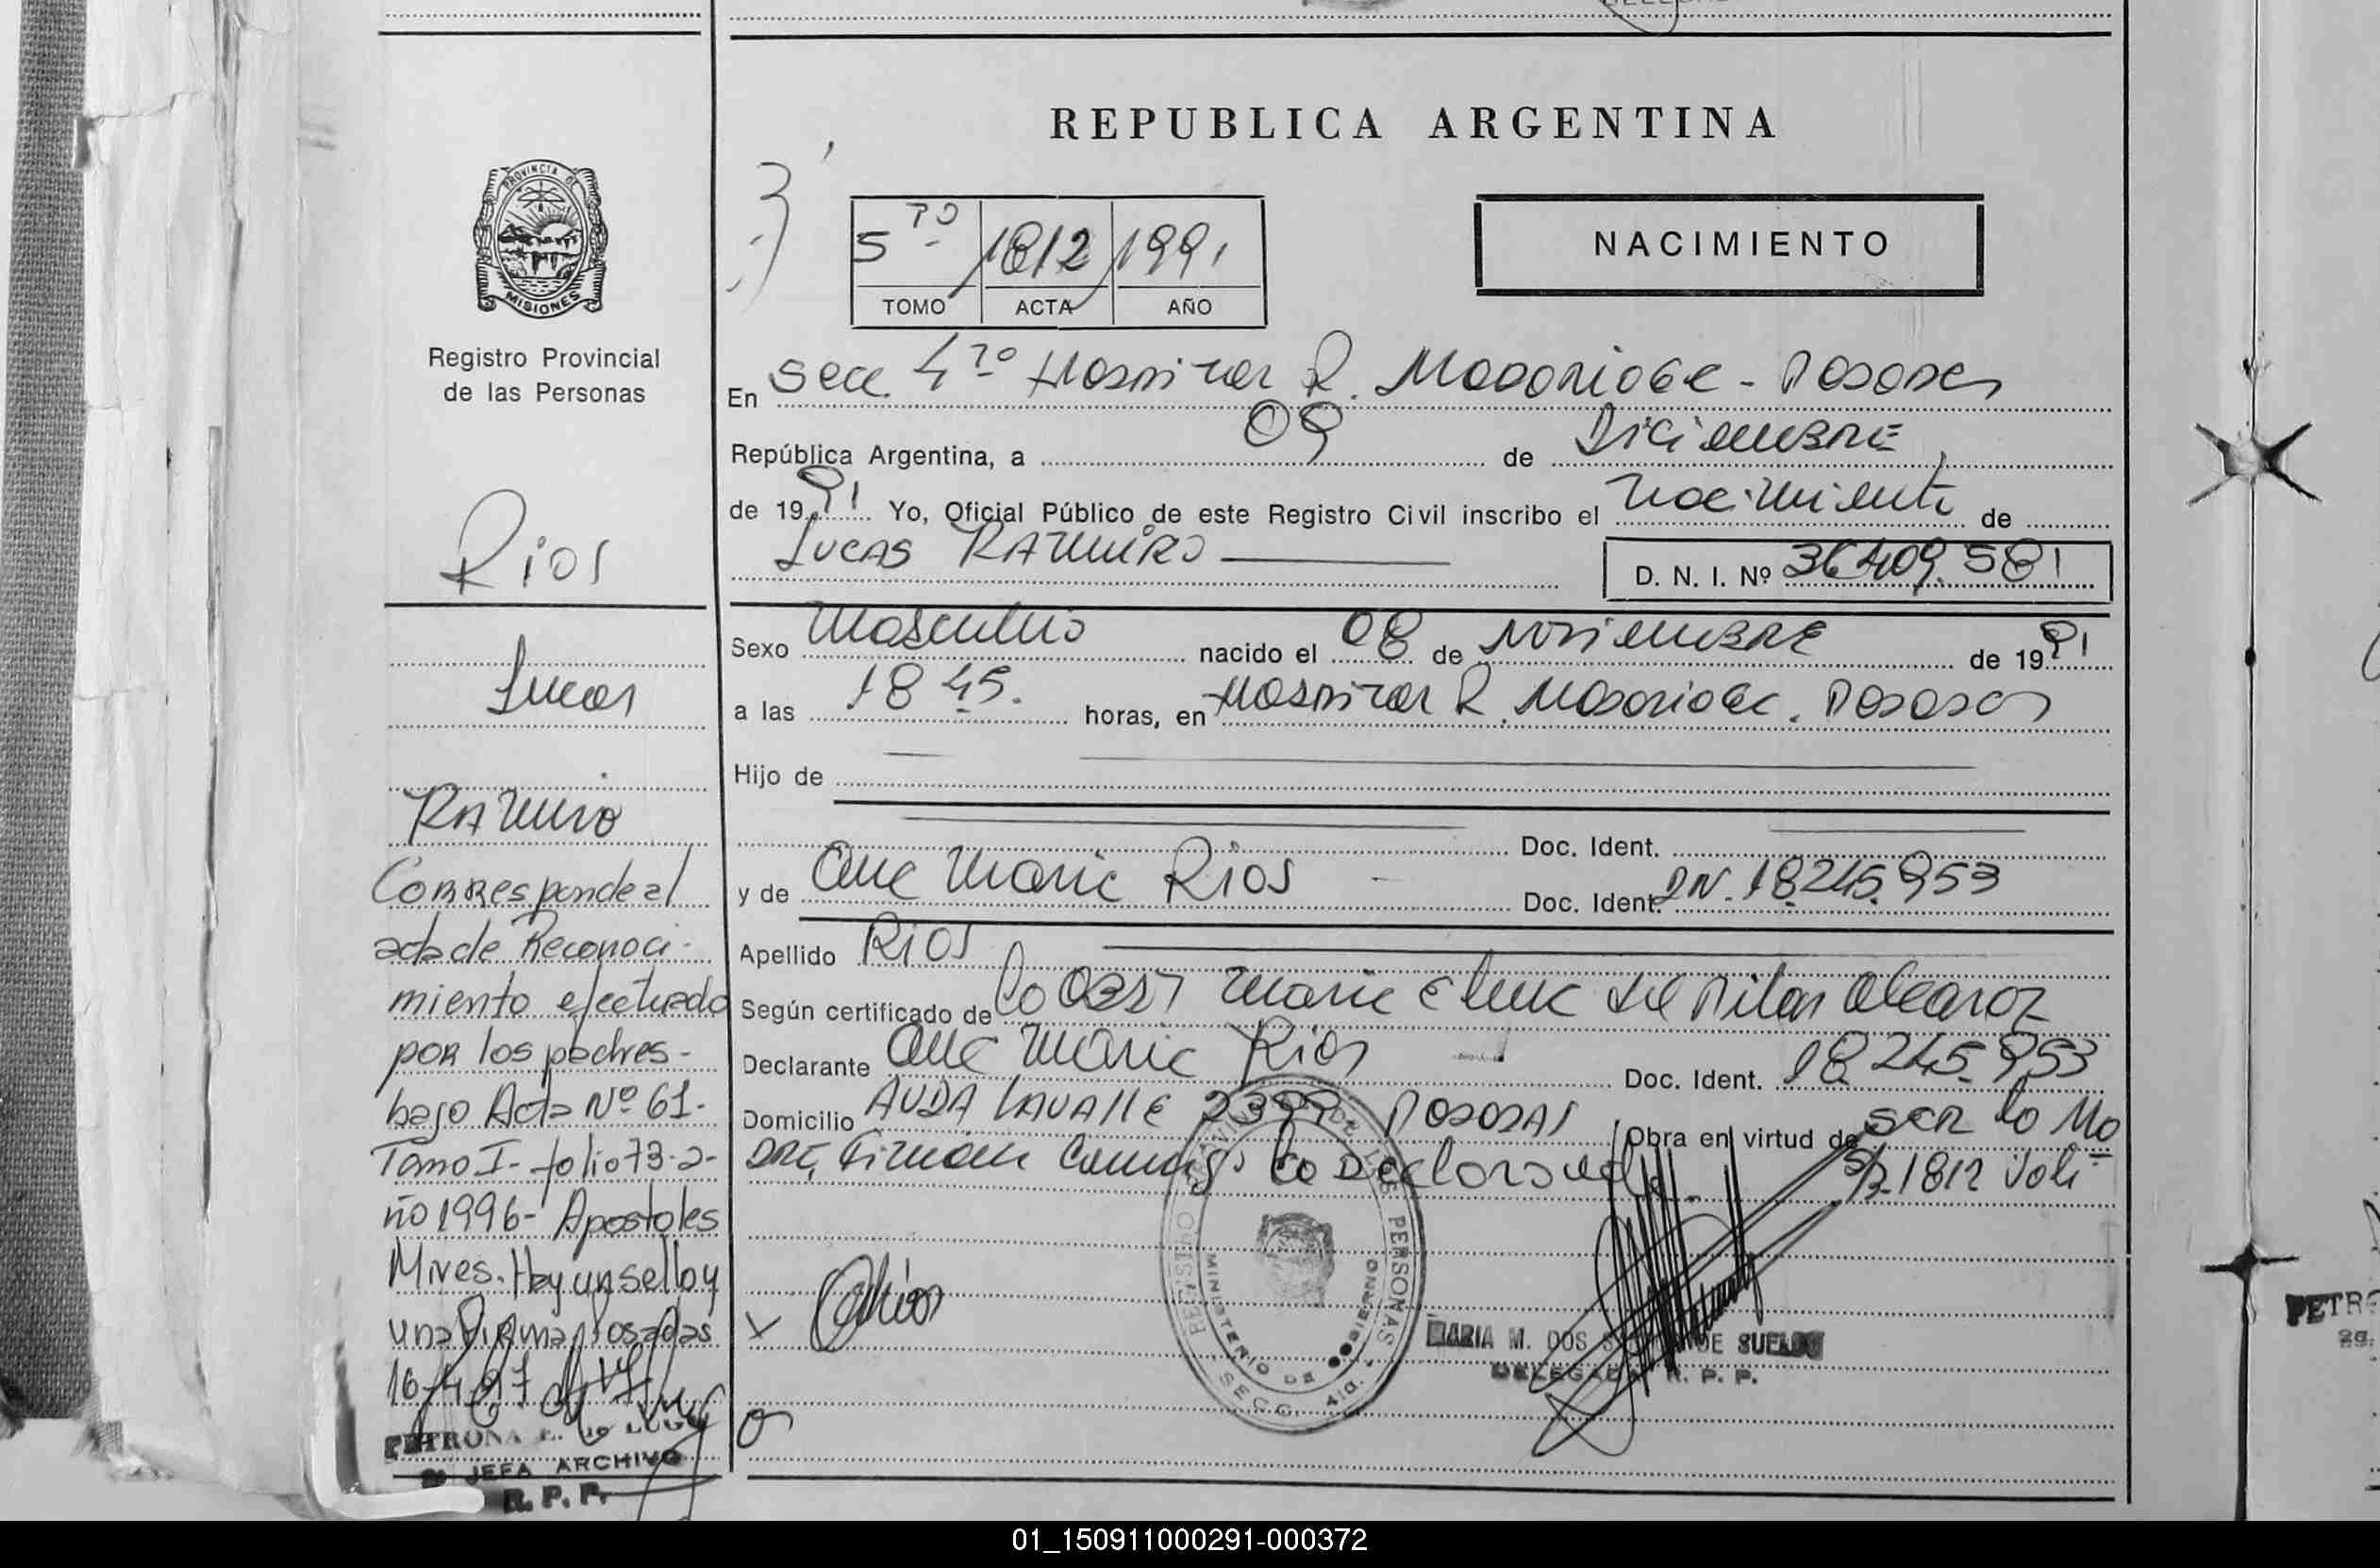 REPUBLICA ARGENTINA
PROVINCIA DE
MISIONES
Registro Provincial
de las Personas
5 TO 1812 1991
TOMO ACTA AÑO
NACIMIENTO
En Secc 4TO Hospital R. Madariaga - Posadas
República Argentina, a 09 de Diciembre
de 1991 Yo, Oficial Público de este Registro Civil inscribo el nacimiento de
Lucas Ramiro
D. N. I. Nº 36.409.581
Sexo Masculino nacido el 08 de Noviembre de 1991
a las 18 45. horas, en Hospital R. Madariaga. Posadas
Hijo de
Doc. Ident.
y de Ana Maria Rios Doc. Ident. DN. 18.245.953
Apellido Rios
Según certificado de Maria Elena del Pilar Alcaraz
Declarante Ana Maria Rios Doc. Ident. 18.245.953
Domicilio AVDA LAVALLE 2399 POSADAS Obra en virtud de ser la Ma
dre, Firman la Declarante. 1812 Vale
Rios
Lucas
Ramiro
Corresponde al
acta de Reconoci-
miento efectuado
por los padres-
bajo Acta Nº 61-
Tomo I- folio 73-a-
ño 1996- Apostoles
Mnes. Hay un sello y
una Firma Posadas
16-4-97
PETRONA E. de LUGO
2a JEFA ARCHIVO
R. P. P.
REGISTRO DE LAS PERSONAS
MINISTERIO DE GOBIERNO
SECC. 4ta.
MARIA M. DOS DE SUELDO
DELEGADA R. P. P.
PETRO
2a.
01_150911000291-000372